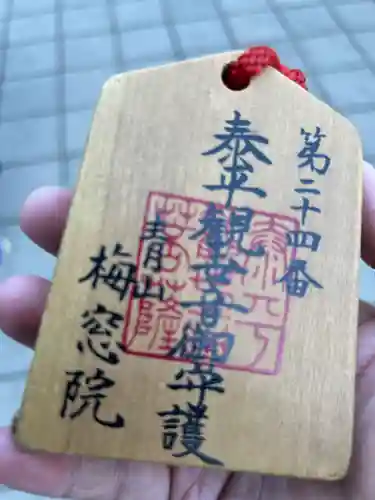 第二十四番
泰平観世音御守護
青月山
梅窓院